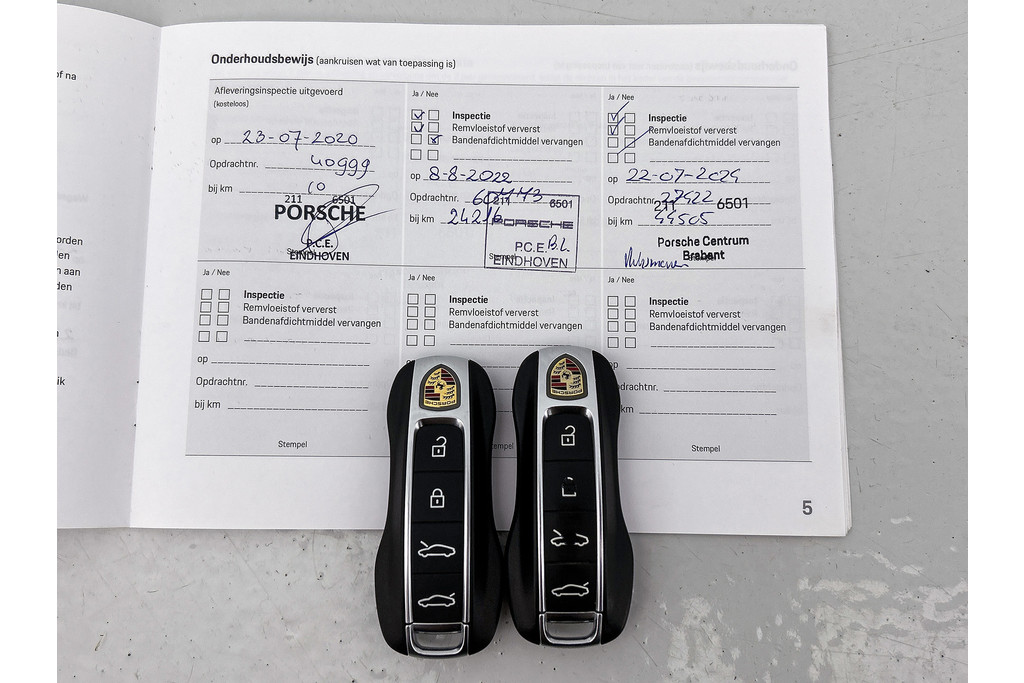 of na
orden
len
n aan
den
ik
Onderhoudsbewijs (aankruisen wat van toepassing is)
Afleveringsinspectie uitgevoerd
(kosteloos)
op 23-07-2020
Opdrachtnr. 40999
bij km 10
211 6501
PORSCHE
P.C.E.
EINDHOVEN
Ja / Nee
Inspectie
Remvloeistof ververst
Bandenafdichtmiddel vervangen
op 8-8-2022
Opdrachtnr.
bij km 24216
211 6501
PORSCHE
P.C.E. B.L.
Stempel
EINDHOVEN
Ja / Nee
Inspectie
Remvloeistof ververst
Bandenafdichtmiddel vervangen
op 22-07-2024
Opdrachtnr. 27422
211 6501
bij km 44505
Porsche Centrum
Brabant
Ja / Nee
Inspectie
Remvloeistof ververst
Bandenafdichtmiddel vervangen
op
Opdrachtnr.
bij km
Stempel
Ja / Nee
Inspectie
Remvloeistof ververst
Bandenafdichtmiddel vervangen
Ja / Nee
Inspectie
Remvloeistof ververst
Bandenafdichtmiddel vervangen
pdrachtnr.
km
Stempel
5
PORSCHE
PORSCHE